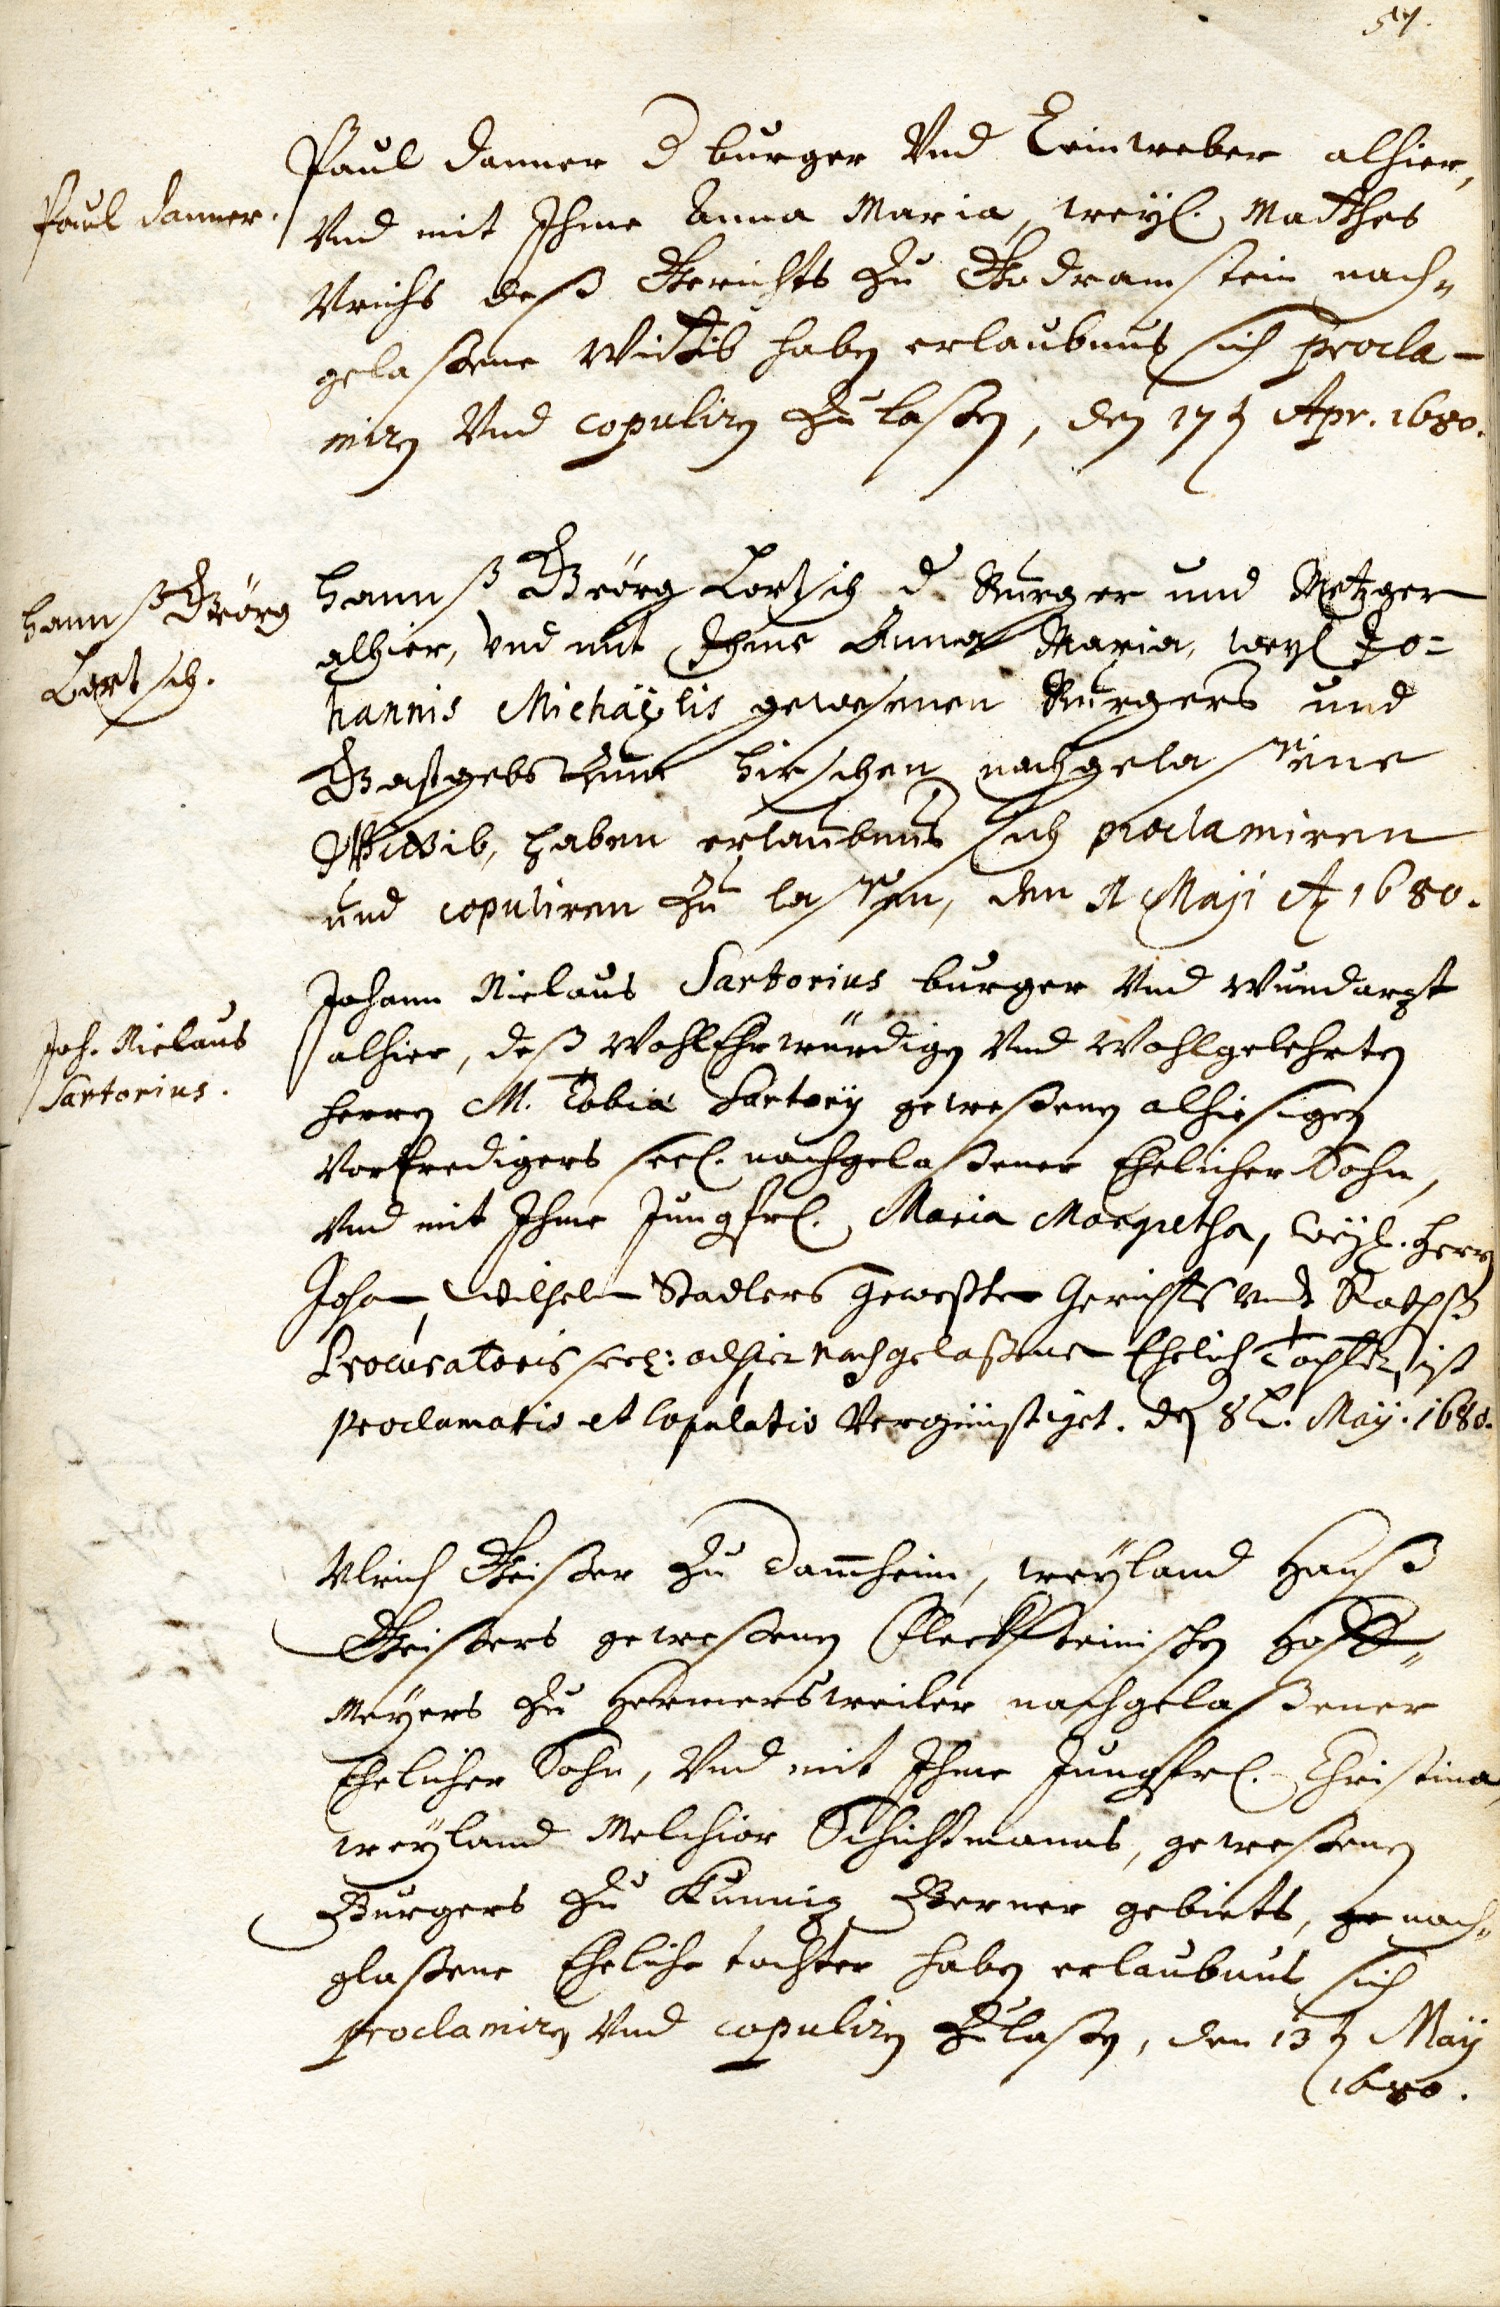 57.
Paul Danner.
Paul Danner d burger Vnd Leinweber alhier,
Vnd mit Ihme Anna Maria, weyl. Matthes
Vrichs deß Gerichts zu Godramstein nach„
gelaßene Wittib haben erlaubnus sich procla-
miren Vnd copuliren zulaßen, den 17t Apr. 1680.
Hannß Geörg
Lortsch.
Hannß Geörg Lortsch d Burger und Metzger
alhier, vnd mit Ihme Anna Maria, weyl Jo=
hannis Michaÿlis gewesenen Burgers und
Gastgebs zum Hirschen nachgelassene
Wittib, haben erlaubnus sich proclamiren
und copuliren zu lassen, den Maji Aº 1680.
Joh. Niclaus
Sartorius.
Johann Niclaus Sartorius burger Vnd Wundarzt
alhier, deß WohlEhrwürdigen Vnd Wohlgelehrten
Herren M. Tobiæ Sartorÿ geweßenen alhiesigen
Vorpredigers seel. nachgelaßener Ehelicher Sohn,
Vnd mit Ihme Jungfrl. Maria Margretha, weyl. Herrn
Johann Wilhelm Stadlers geweßten Gerichts Vnd Rathß
Procuratoris seel: alhier nachgelaßene Ehelich Tochter, ist
proclamatio et Copulatio Vergünstiget. den 8t. Maÿ. 1680.
Vlrich Geißer zu Dam̄heim, weyland Hanß
Geißers geweßenen Fleckhsteinischen Hoff„
Meyers zu Hermersweiler nachgelaßener
Ehelicher Sohn, Vnd mit Ihme Jungfrl. Christina,
weyland Melchior Schuchmanns, geweßenen
Burgers zu Kunniz Berner gebiets, nach„
glaßene Eheliche tochter haben erlaubnus sich
proclamiren Vnd copuliren zulaßen, den 13t Maÿ
1680.